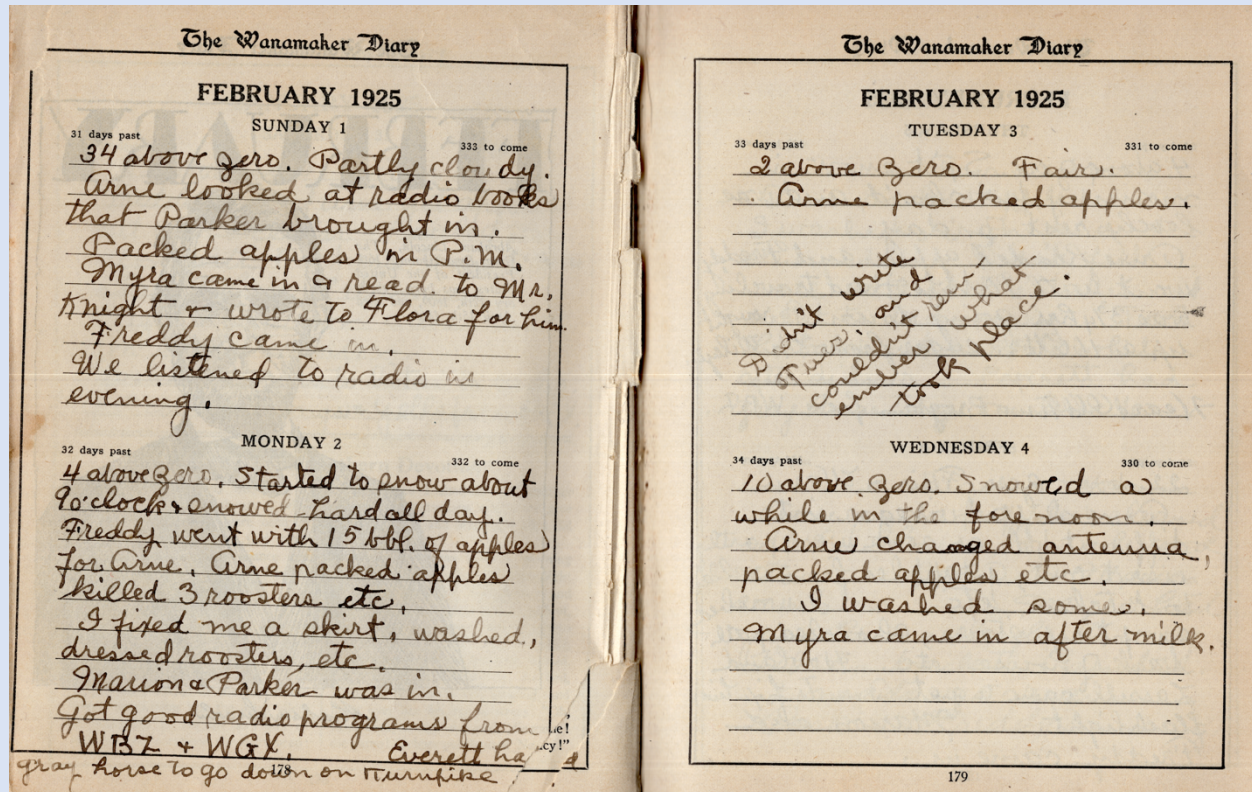 The Wanamaker Diary
FEBRUARY 1925
SUNDAY 1
31 days past
333 to come
34 above zero. Partly cloudy.
Arne looked at radio books
that Parker brought in.
Packed apples in P.M.
Myra came in & read to Mr.
Knight & wrote to Flora for him.
Freddy came in.
We listened to radio in
evening.
MONDAY 2
32 days past
332 to come
4 above zero. Started to snow about
9 o'clock & snowed hard all day.
Freddy went with 15 bbl. of apples
for Arne. Arne packed apples
killed 3 roosters etc.
I fixed me a skirt, washed,
dressed roosters, etc.
Marion & Parker was in.
Got good radio programs from
WBZ & WGX. Everett had
gray horse to go down on Turnpike
178
The Wanamaker Diary
FEBRUARY 1925
TUESDAY 3
33 days past
331 to come
2 above zero. Fair.
Arne packed apples.
Didn't write
Tues. and
couldn't rem-
ember what
took place.
WEDNESDAY 4
34 days past
330 to come
10 above zero. Snowed a
while in the forenoon.
Arne changed antenna,
packed apples etc.
I washed some.
Myra came in after milk.
179